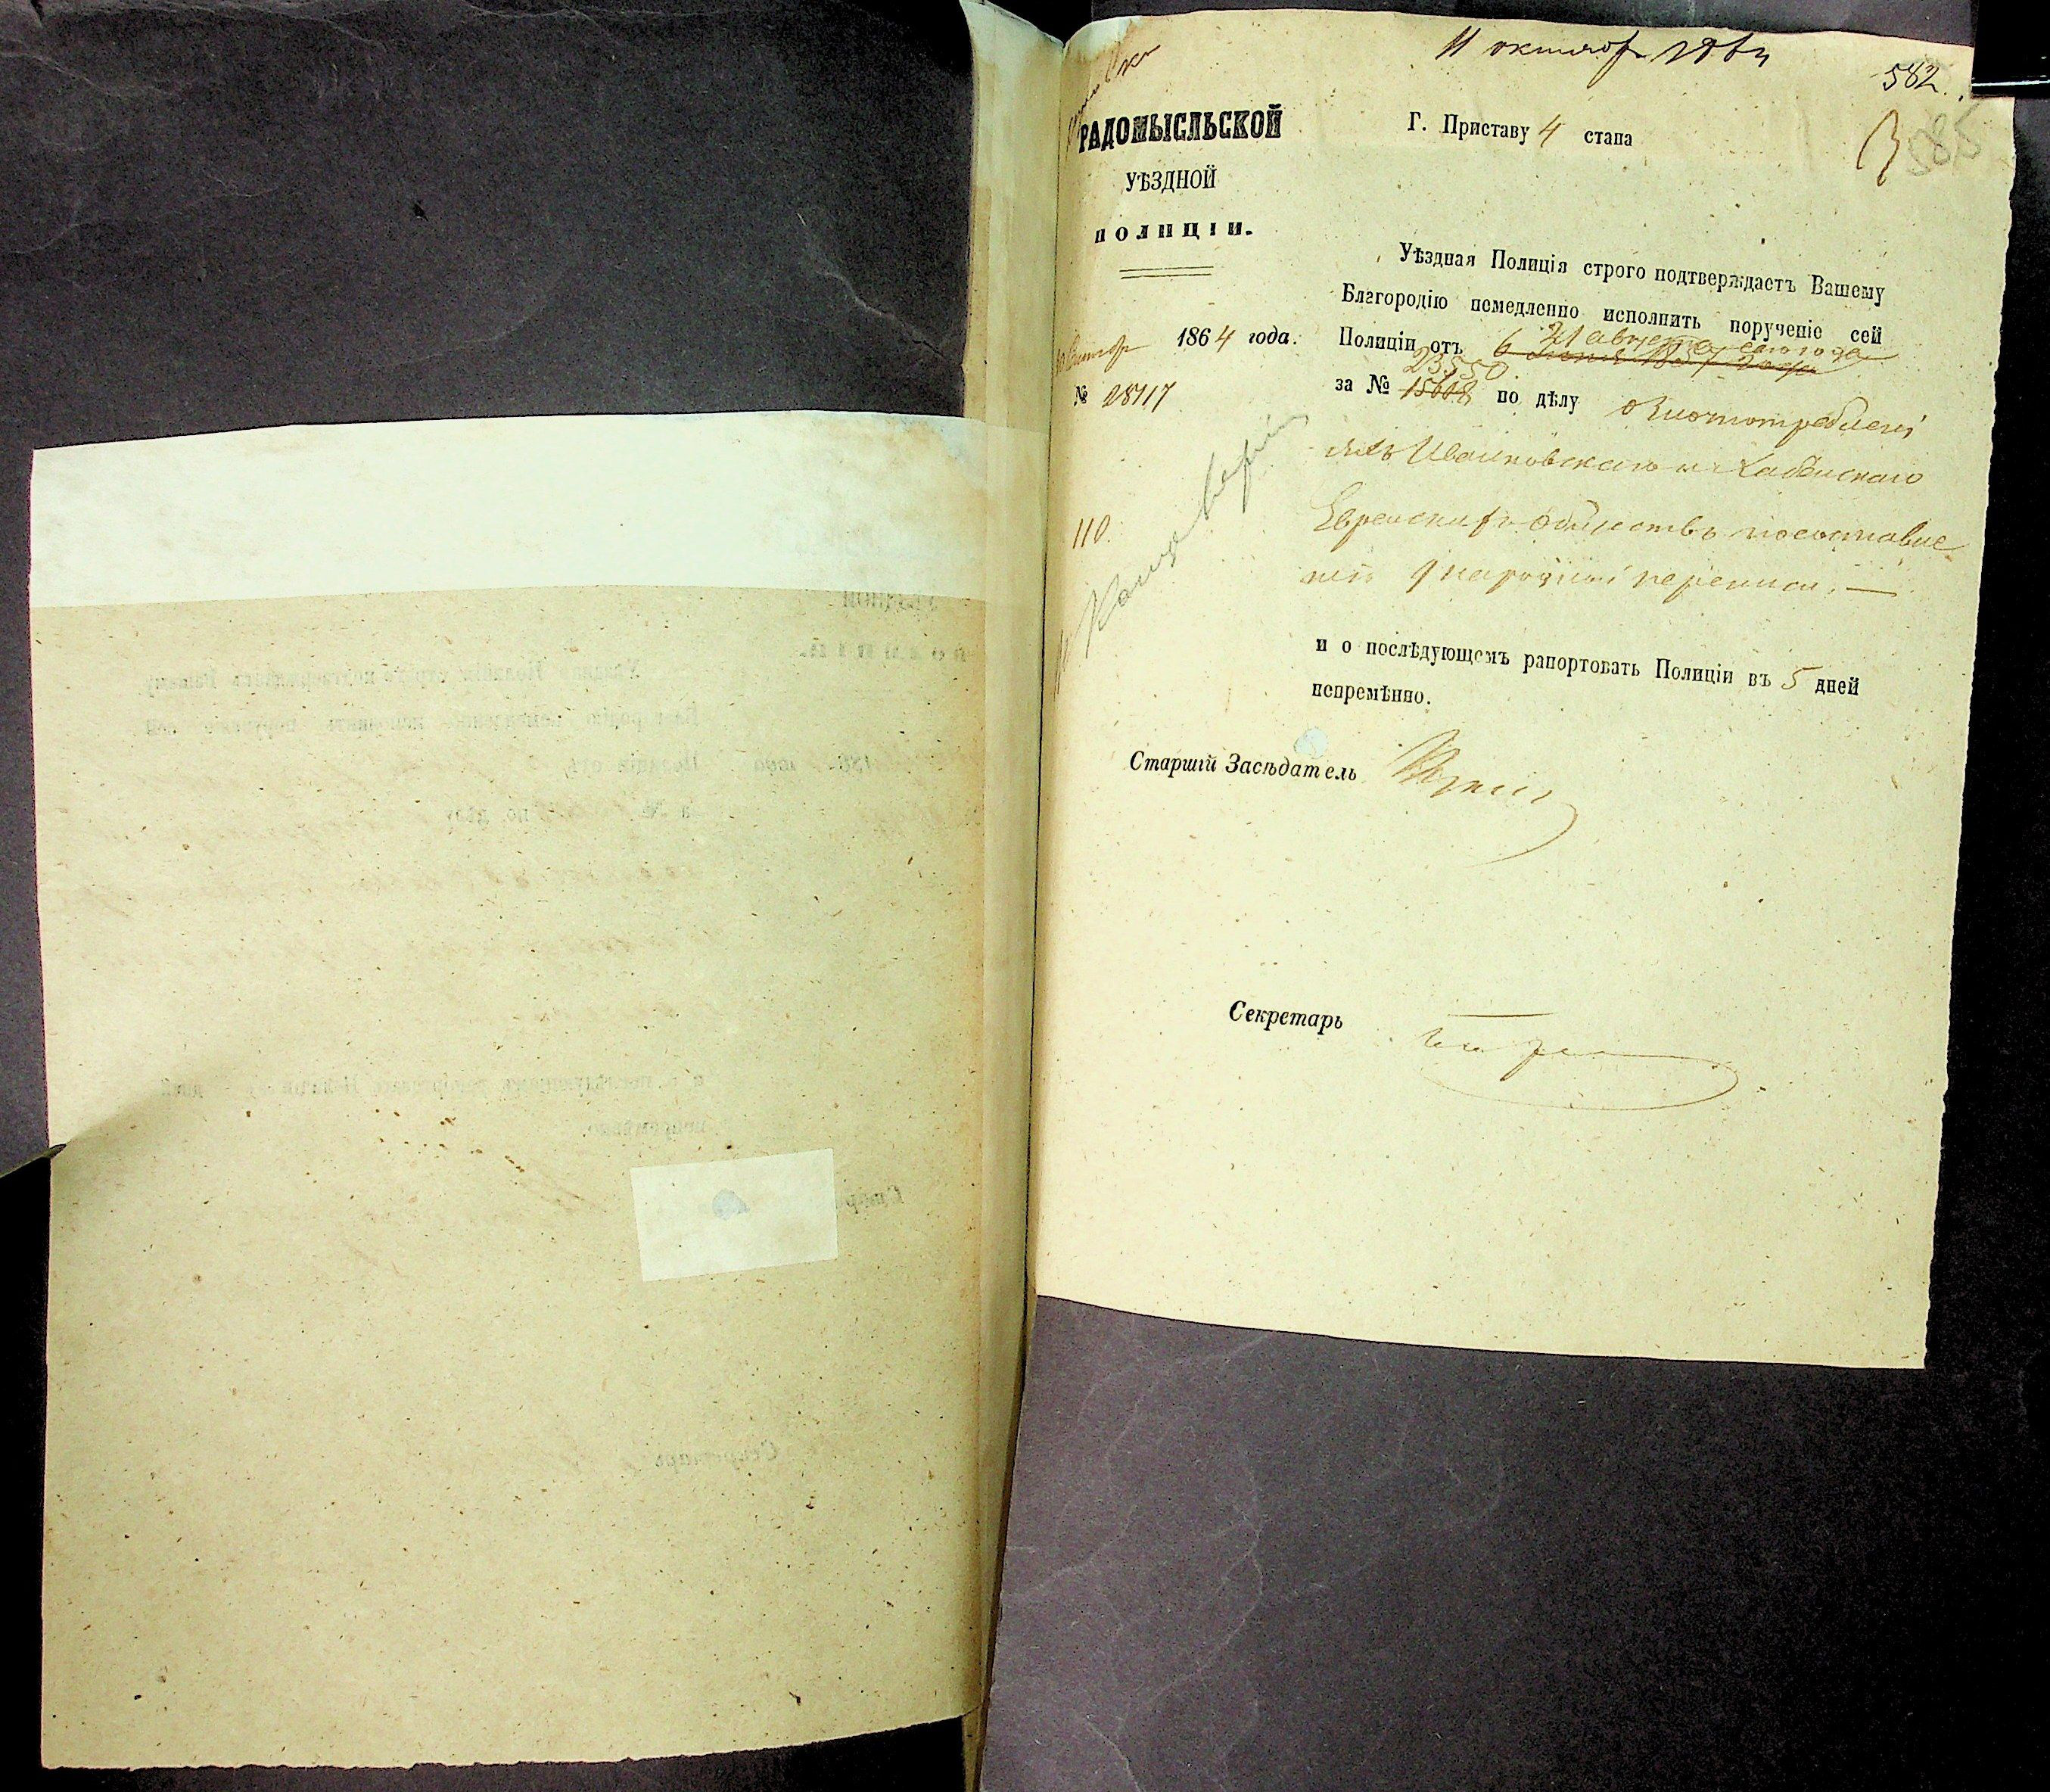 11 октябр 1864
582.
585
РАДОМЫСЛЬСКОЙ
УѢЗДНОЙ
ПОЛИЦІИ.
1864 года.
№ 28117
110.
Г. Приставу 4 стана
Уѣздная Полиція строго подтверждаетъ Вашему
Благородію немедленно исполнить порученіе сей
21 августа сего года
Полиціи отъ 6
23550
за № 15668 по дѣлу о злоупотреблені
яхъ Иванковскаго и Хабенскаго
Еврейскихъ обществъ по составле
нію 9 народной переписи. —
и о послѣдующемъ рапортовать Полиціи въ 5 дней
непремѣнно.
Старшій Засѣдатель
Секретарь